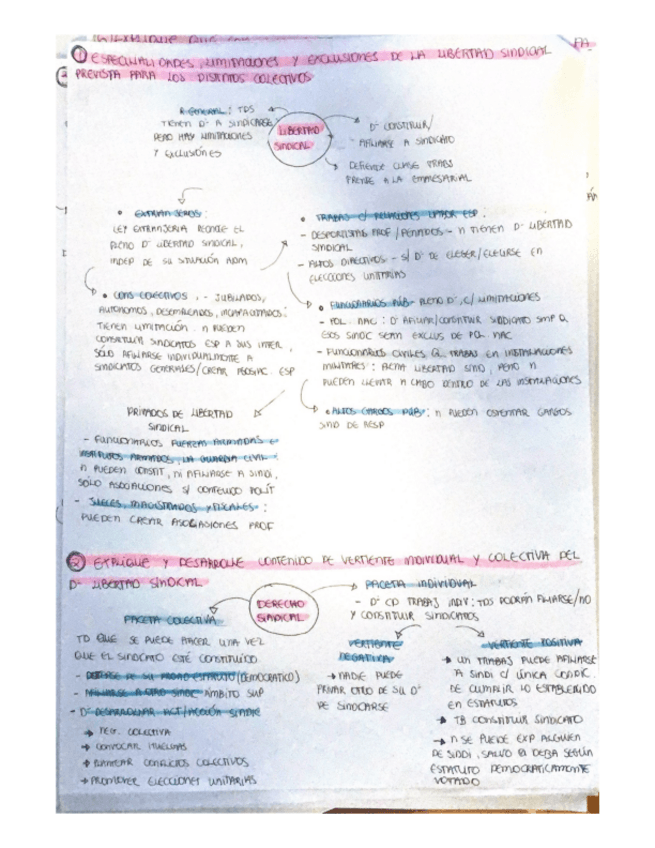 ① ESPECIALIDADES, LIMITACIONES Y EXCLUSIONES DE LA LIBERTAD SINDICAL
PREVISTA PARA LOS DISTINTOS COLECTIVOS
R GENERAL: TDS
TIENEN Dº A SINDICARSE
PERO HAY LIMITACIONES
Y EXCLUSIÓNES
LIBERTAD
SINDICAL
Dº CONSTITUIR/
AFILIARSE A SINDICATO
DEFIENDE CLASE TRABJ
FRENTE A LA EMPRESARIAL
• EXTRANJEROS:
LEY EXTRANJERIA RECONOCE EL
PLENO Dº LIBERTAD SINDICAL,
INDEP DE SU SITUACIÓN ADM
• CONS COLECTIVOS: - JUBILADOS,
AUTONOMOS, DESEMPLEADOS, INCAPACITADOS:
TIENEN LIMITACIÓN. n PUEDEN
CONSTITUIR SINDICATOS ESP A SUS INTER,
SÓLO AFILIARSE INDIVIDUALMENTE A
SINDICATOS GENERALES/CREAR ESP
PRIVADOS DE LIBERTAD
SINDICAL
- FUNCIONARIOS FUERZAS ARMADAS E
INSTITUTOS ARMADOS, LA GUARDIA CIVIL:
n PUEDEN CONSTIT, NI AFILIARSE A SINDI,
SÓLO ASOCIACIONES S/ CONTENIDO POLÍT
- JUECES, MAGISTRADOS Y FISCALES:
PUEDEN CREAR ASOCIASIONES PROF
• TRABAJ C/ RELACIONES LABOR ESP:
- DEPORTISTAS PROF / PENADOS - n TIENEN Dº LIBERTAD
SINDICAL
- ALTOS DIRECTIVOS - S/ Dº DE ELEGER/ELEGIRSE EN
ELECCIONES UNITARIAS
• FUNCIONARIOS PÚB - PLENO Dº, C/ LIMITACIONES
- POL. NAC: Dº AFILIAR/CONSTITUIR SINDICATO SMP Q
ESOS SINDIC SEAN EXCLUS DE POL. NAC
- FUNCIONARIOS CIVILES Q TRABAJ EN INSTALACIONES
MILITARES: PLENA LIBERTAD SIND, PERO n
PUEDEN LLEVAR A CABO DENTRO DE LAS INSTALACIONES
• ALTOS CARGOS PÚB: n PUEDEN OSTENTAR CARGOS
SIND DE RESP
② EXPLIQUE Y DESARROLLE CONTENIDO DE VERTIENTE INDIVIDUAL Y COLECTIVA DEL
Dº LIBERTAD SINDICAL
DERECHO
SINDICAL
FACETA COLECTIVA
TD QUE SE PUEDE HACER UNA VEZ
QUE EL SINDICATO ESTÉ CONSTITUIDO
- DEFENSA DE SU PROPIO ESTATUTO (DEMOCRATICO)
- AFILIARSE A OTRO SINDIC ÁMBITO SUP
- Dº DESARROLLAR ACT/ACCIÓN SINDIC
→ NEG. COLECTIVA
→ CONVOCAR HUELGAS
→ PLANTEAR CONFLICTOS COLECTIVOS
→ PROMOVER ELECCIONES UNITARIAS
FACETA INDIVIDUAL
- Dº CD TRABAJ INDIV: TDS PODRÁN AFILIARSE/NO
Y CONSTITUIR SINDICATOS
VERTIENTE
NEGATIVA
→ NADIE PUEDE
PRIVAR OTRO DE SU Dº
DE SINDICARSE
VERTIENTE POSITIVA
→ UN TRABAJ PUEDE AFILIARSE
A SINDI C/ ÚNICA CONDIC.
DE CUMPLIR LO ESTABLECIDO
EN ESTATUTOS
→ TB CONSTITUIR SINDICATO
→ n SE PUEDE EXP ALGUIEN
DE SINDI, SALVO Q DEBA SEGÚN
ESTATUTO DEMOCRATICAMENTE
VOTADO